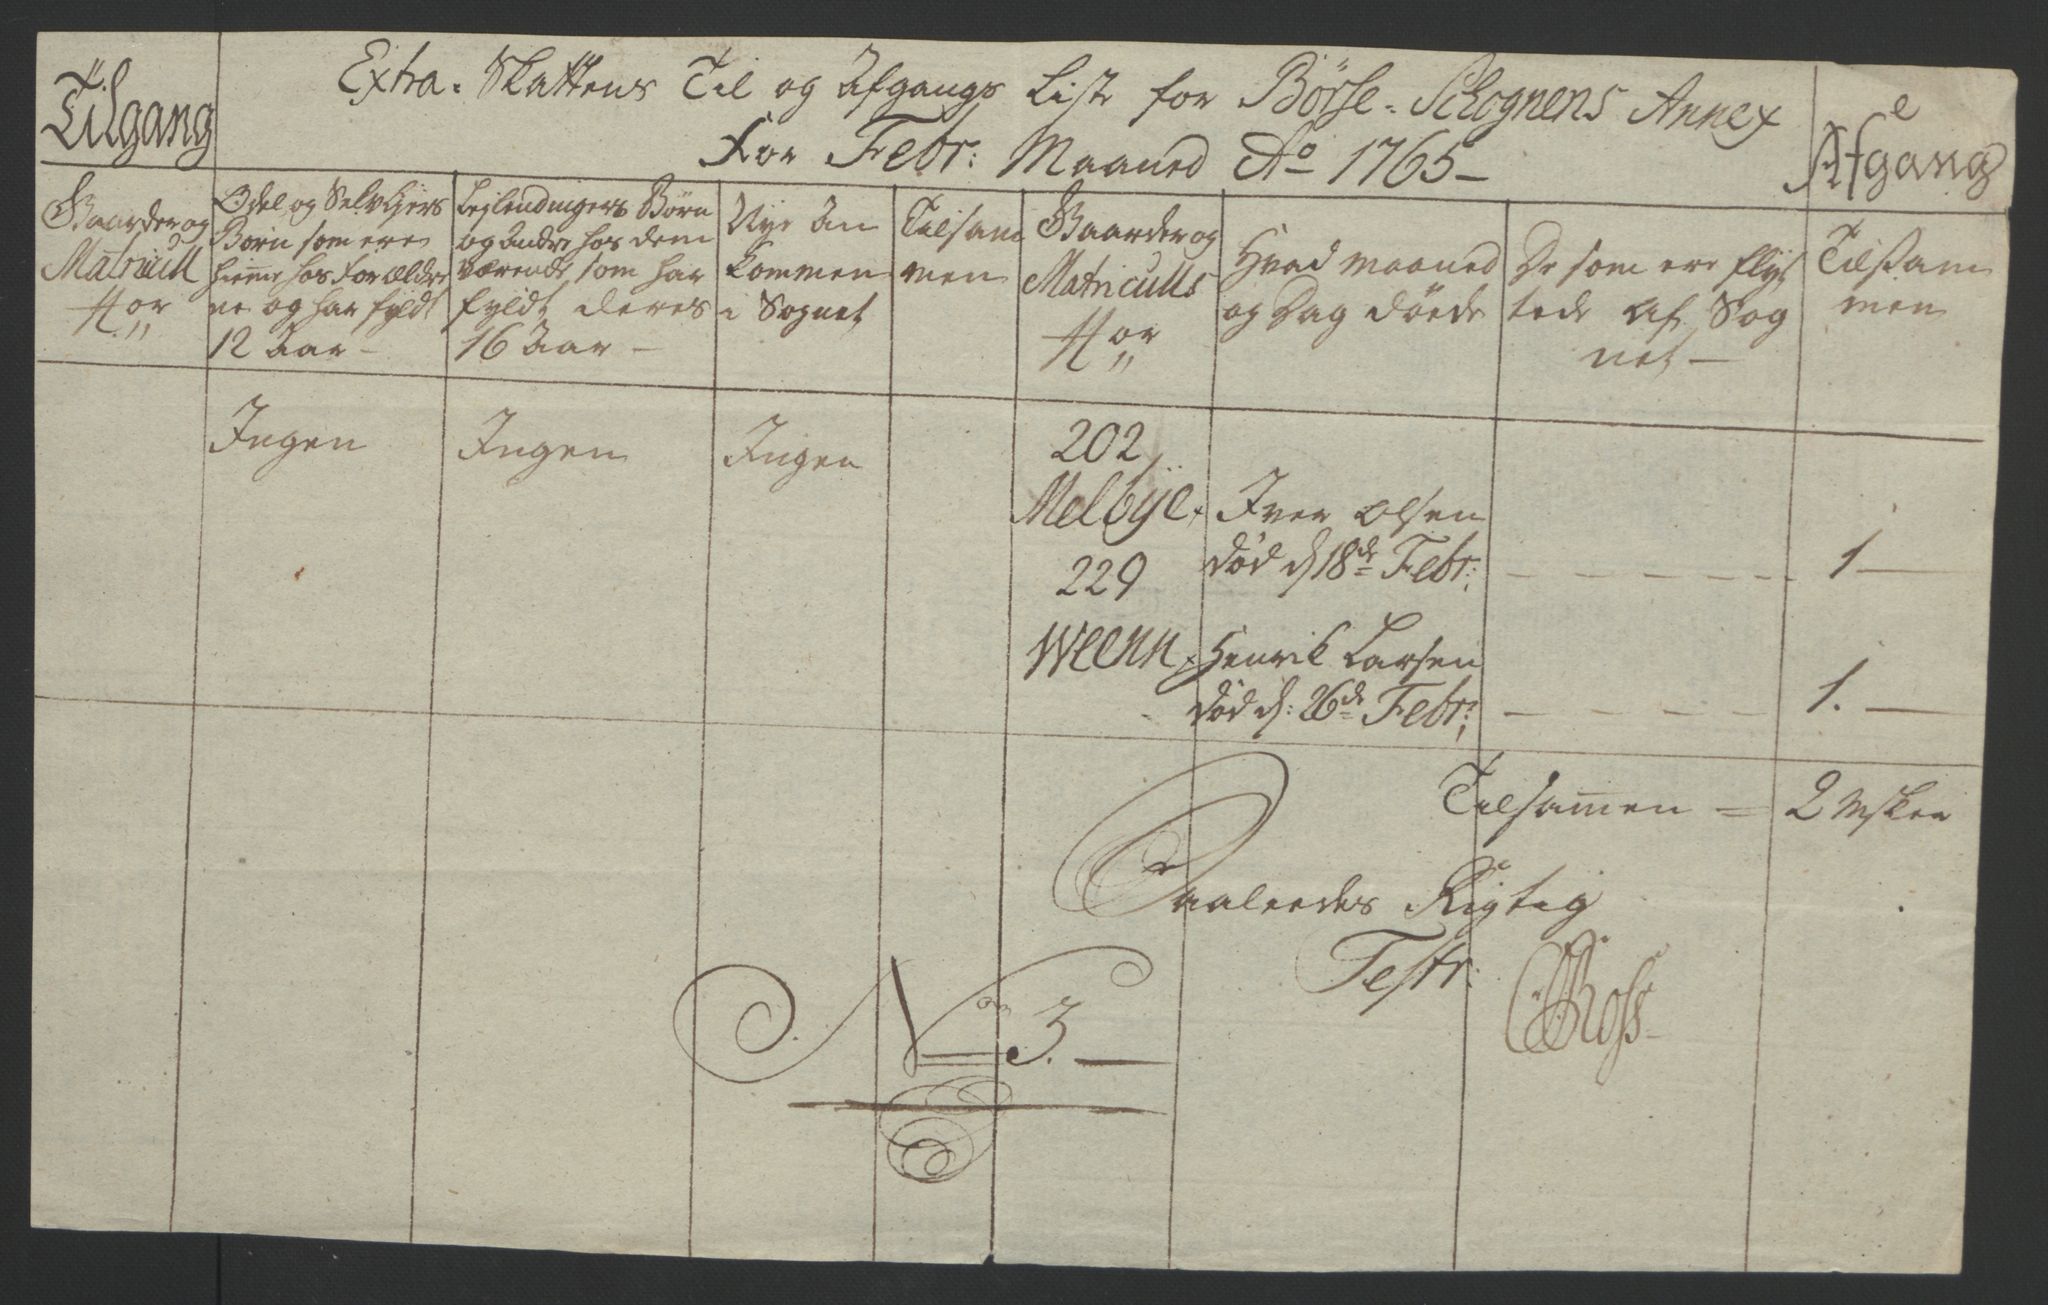 Tilgang
Extra. Skattens Til og Afgangs Liste for Börse-Schognens Annex
For Febr: Maaned Ao 1765
Afgang
Gaarder og
Matricull
Nor
Odel og Selvejers
Börn som ere
hieme hos Forældre
ne og har fyldt
12 Aar
Lejlendingers Börn
og Andre hos dem
værende som har
fyldt deres
16 Aar
Nye An
kommen
i Sognet
Tilsam
men
Gaarder og
Matriculls
Nor
Hvad maaned
og Dag döede
De som ere flyt
tede af Sog
net
Tilsam
men
Ingen
Ingen
Ingen
202
Melbye
Iver Olsen
död d 18de Febr:
1
229
Weenn
Henrik Larsen
död d: 26de Febr:
1.
Tilsammen = 2 Msker
Saaleedes Rigtig
Test:
Ross
No 3.